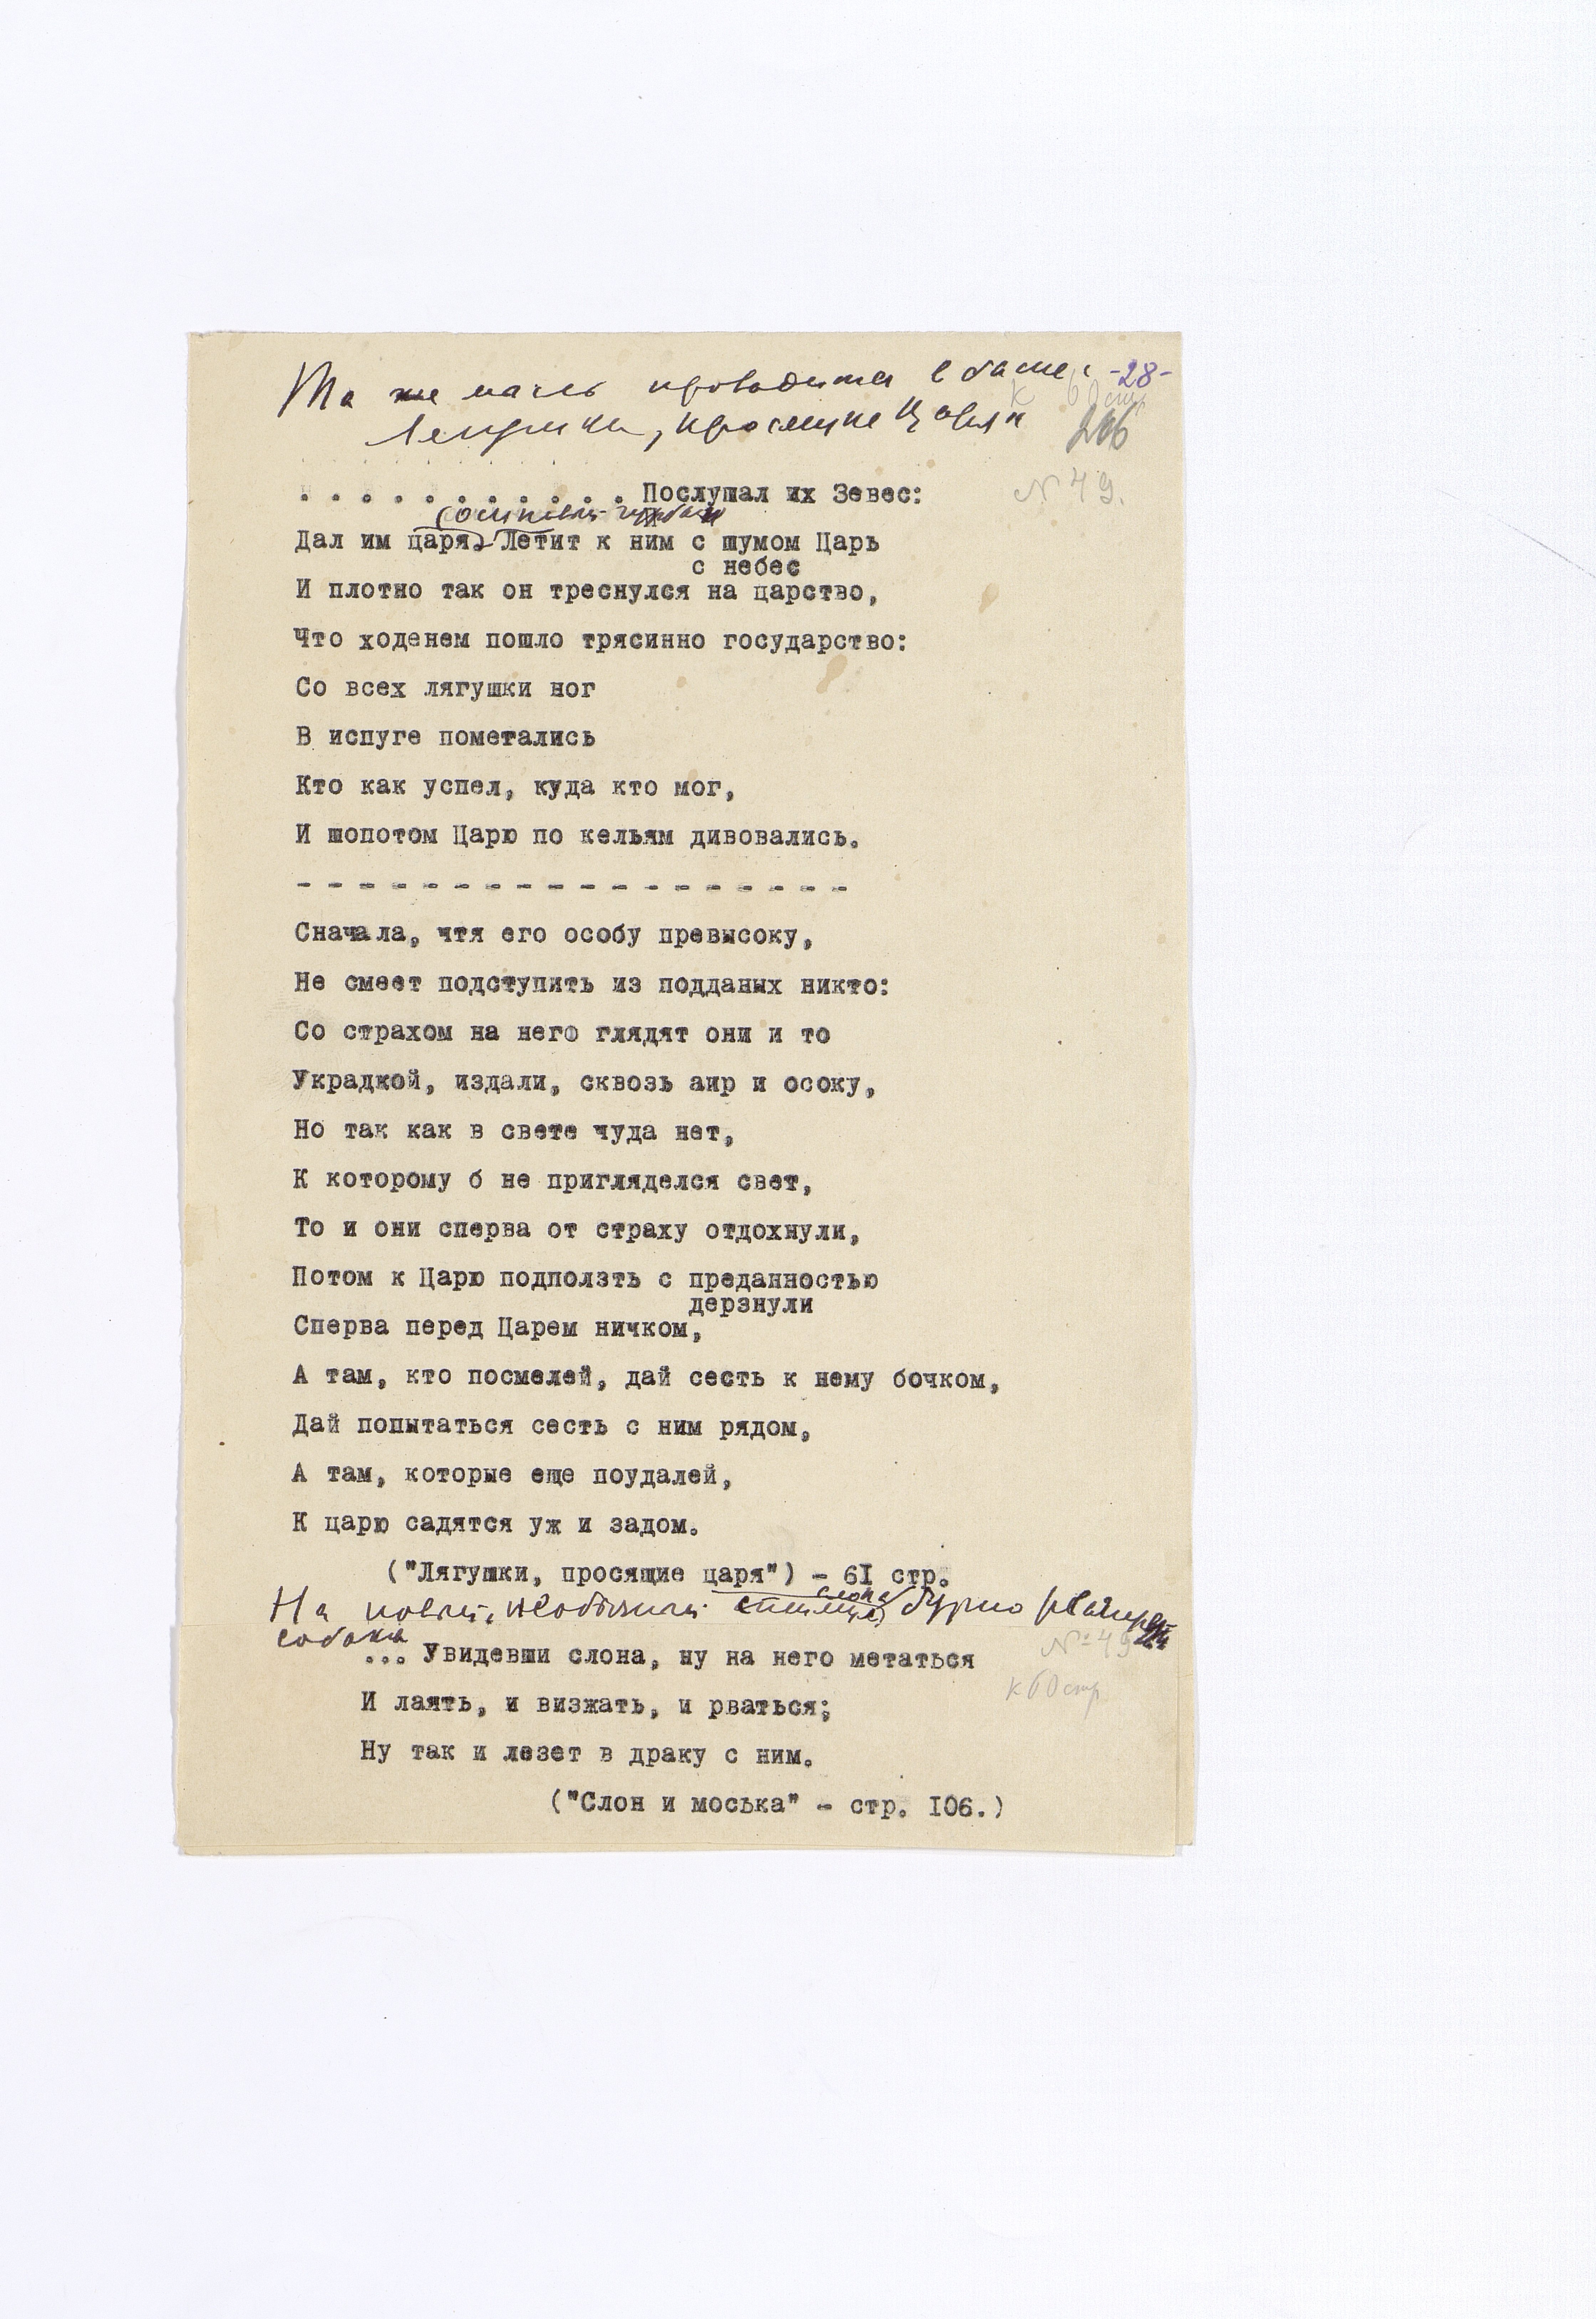 Та же мысль проводится в басне: -28-
Лягушки, просящие Царя к 60 стр
206
. . . . . . . . . . . Послушал их Зевес:
№ 49.
осиновый чурбан
Дал им царя. Летит к ним с шумом Царь
с небес
И плотно так он треснулся на царство,
Что ходенем пошло трясинно государство:
Со всех лягушки ног
В испуге пометались
Кто как успел, куда кто мог,
И шопотом Царю по кельям дивовались.
- - - - - - - - - - - - - - - - - -
Сначала, чтя его особу превысоку,
Не смеет подступить из подданых никто:
Со страхом на него глядят они и то
Украдкой, издали, сквозь аир и осоку,
Но так как в свете чуда нет,
К которому б не пригляделся свет,
То и они сперва от страху отдохнули,
Потом к Царю подползть с преданностью
дерзнули
Сперва перед Царем ничком,
А там, кто посмелей, дай сесть к нему бочком,
Дай попытаться сесть с ним рядом,
А там, которые еще поудалей,
К царю садятся уж и задом.
("Лягушки, просящие царя") - 61 стр.
слона
На новый, необычный бурно реагирует
собака № 49
... Увидевши слона, ну на него метаться
к 60 стр
И лаять, и визжать, и рваться;
Ну так и лезет в драку с ним.
("Слон и моська" - стр. 106.)